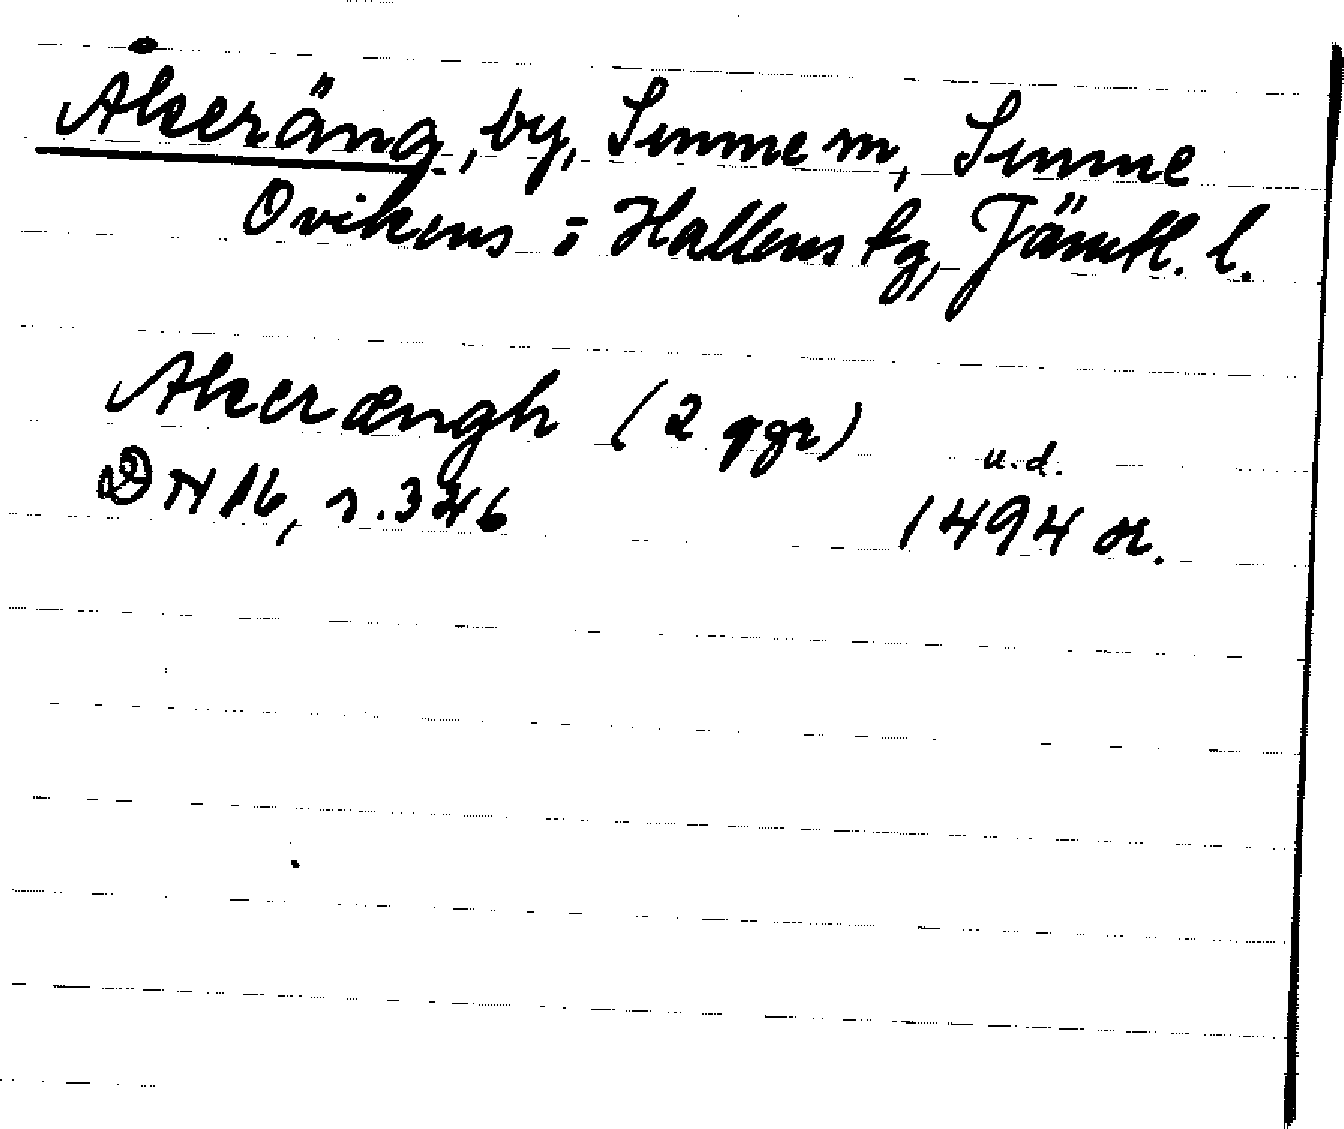 Åkeräng, by, Sunne sn, Sunne
Ovikens o Hallens tg, Jämtl. l.
Akerængh (2 ggr) u.d.
DN 16, s. 346 1494 or.